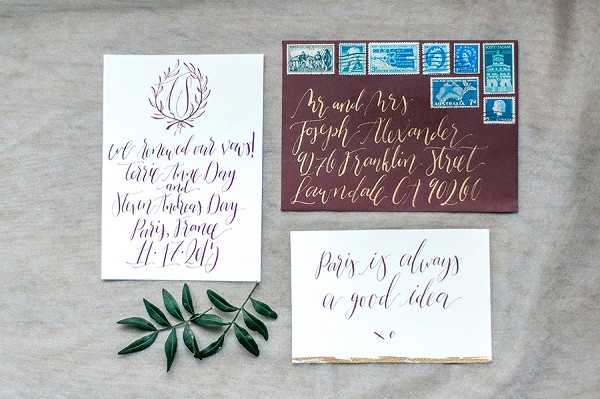 we renewed our vows!
Terrie Anne Day
and
Steven Andreas Day
Paris, France
11·17·2015
Mr and Mrs
Joseph Alexander
9176 Franklin Street
Lawndale CA 90260
AUSTRALIA 7d
Paris is always
a good idea
xo